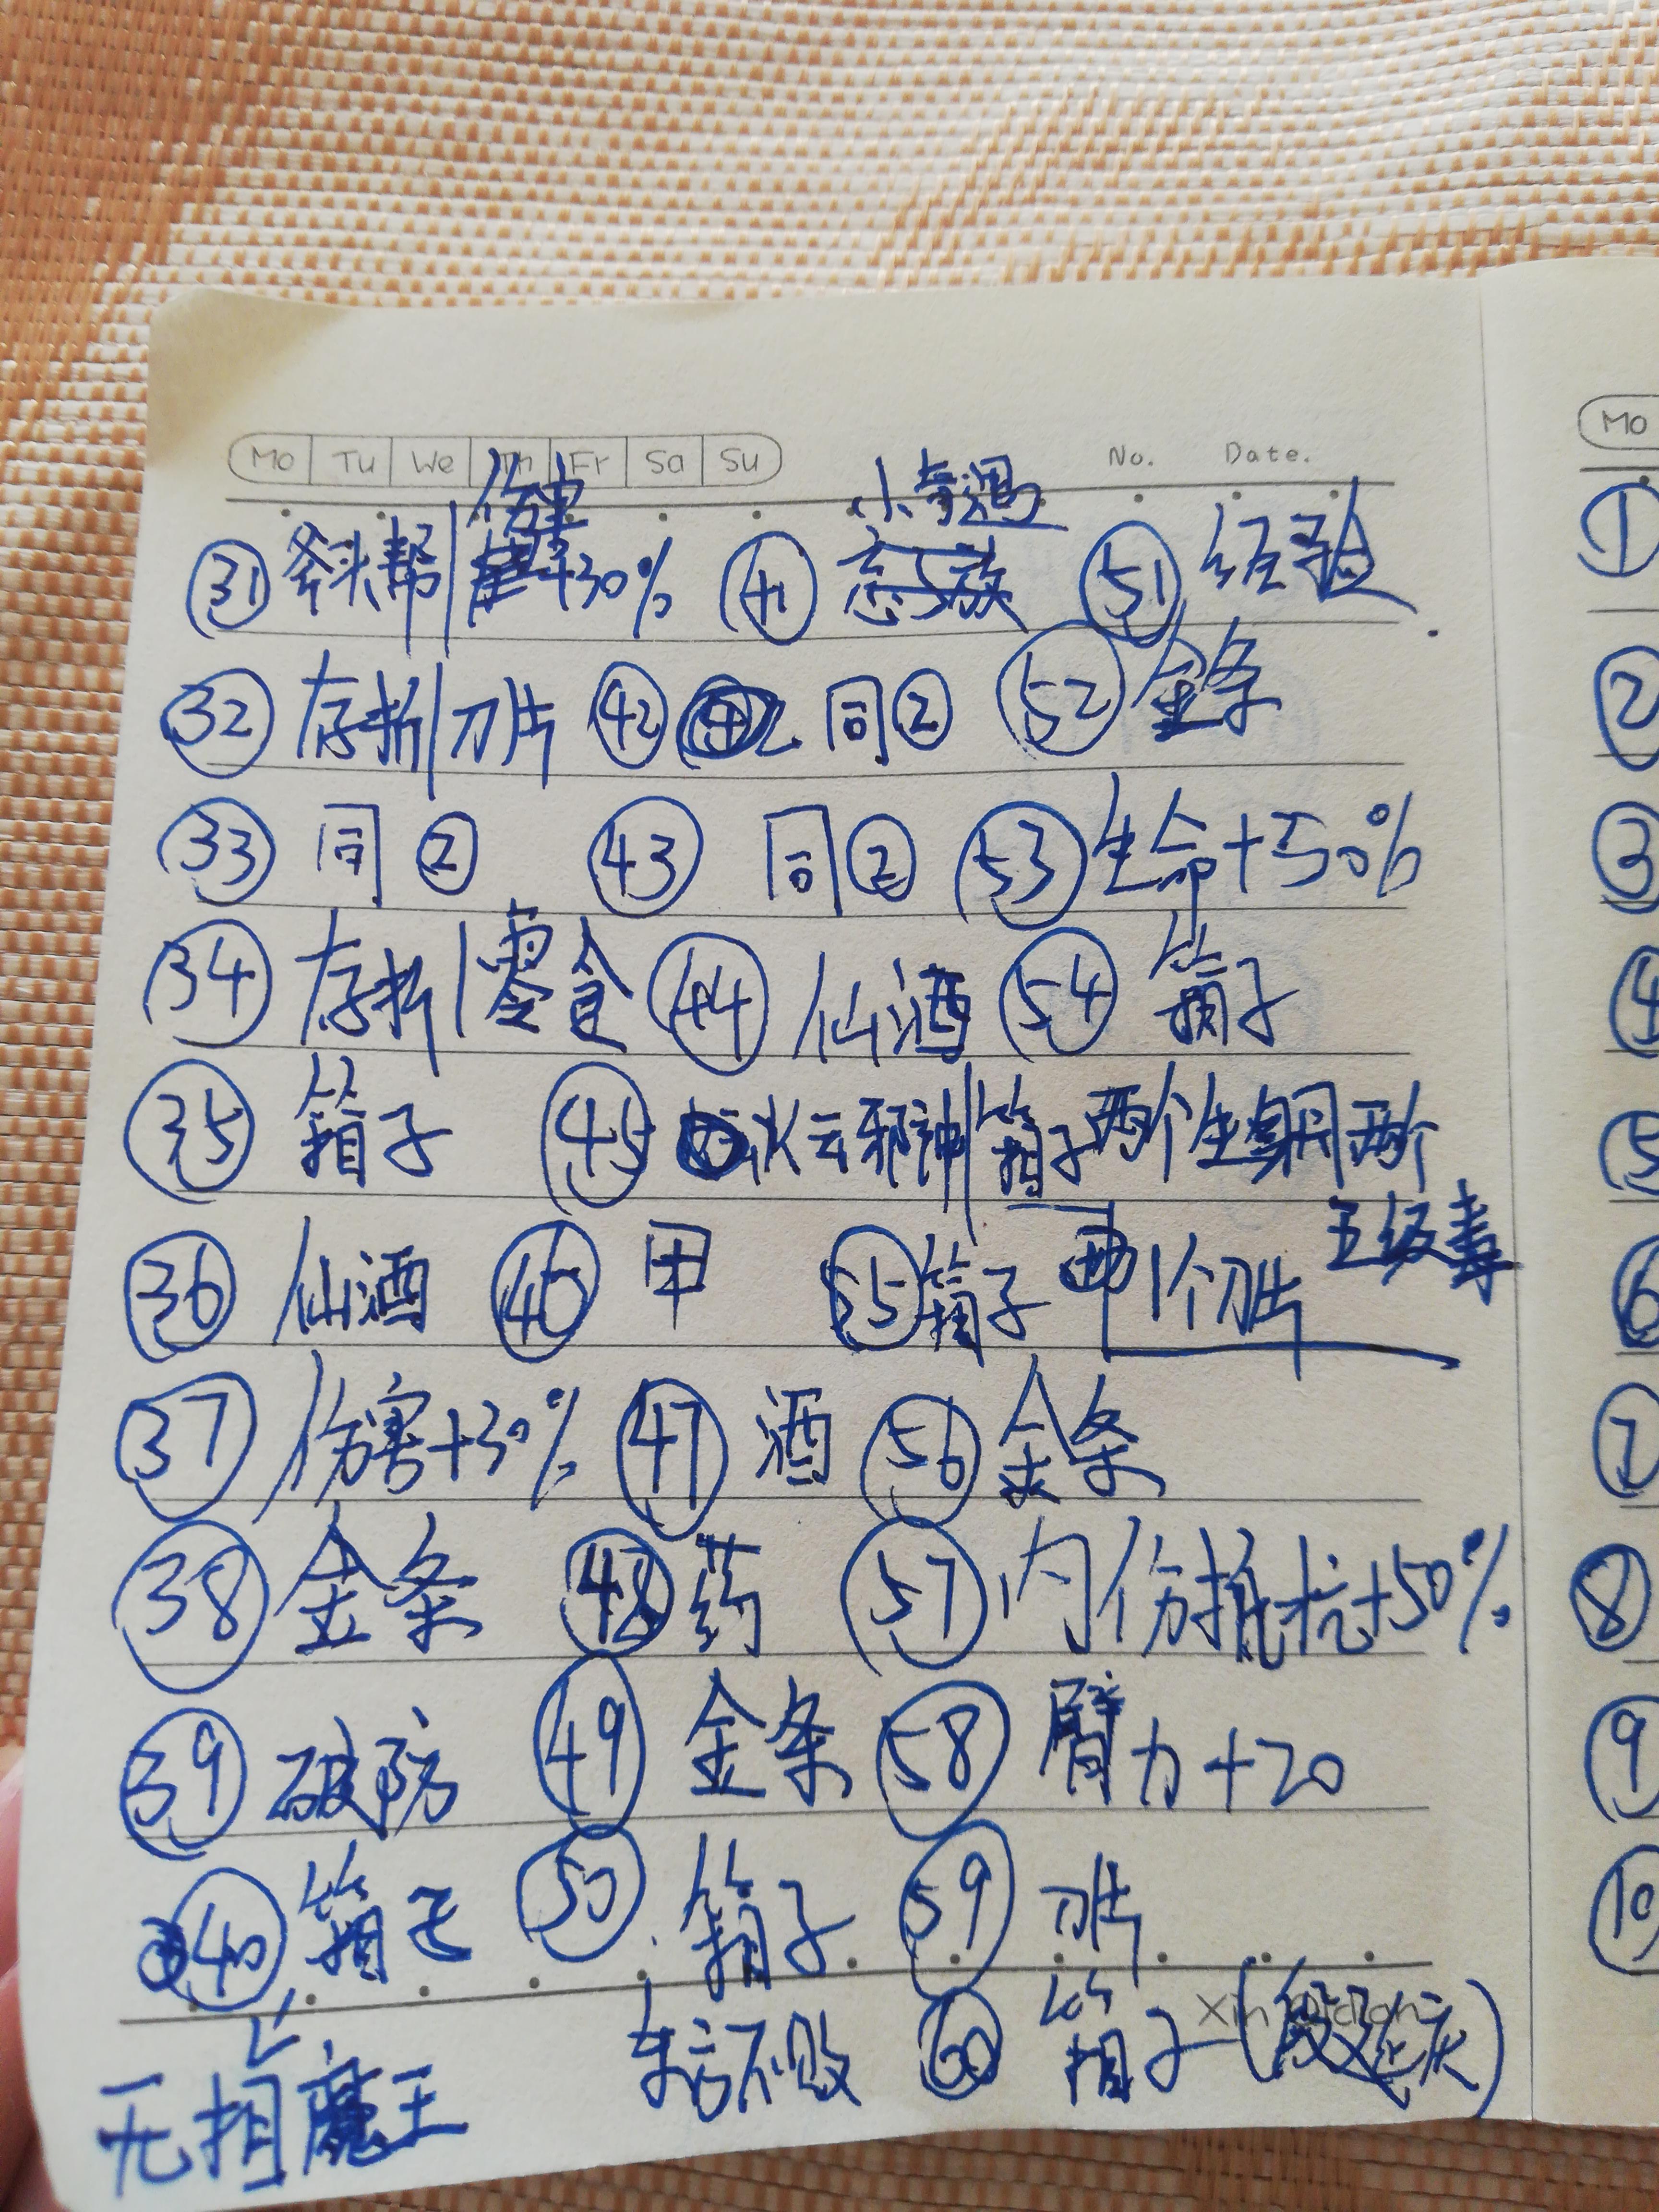 Mo Tu We Th Fr Sa Su No. Date. Mo
伤害 小奇遇
㉛ 斧头帮 | +30% ㊶ ㊿① 经验 ①
㉜ 存折 | 刀片 ㊷ 同② 52 金条 ②
㉝ 同② ㊸ 同② 53 生命+50% ③
㉞ 存折 | 零食 ㊹ 仙酒 54 箱子 ④
㉟ 箱子 ㊺ 火云邪神 | 箱子两个 两个 ⑤
五级毒
㊱ 仙酒 ㊻ 甲 55 箱子 1个刀片 ⑥
㊲ 伤害+30% ㊼ 酒 56 金条 ⑦
㊳ 金条 ㊽ 药 57 内伤抵抗+50% ⑧
㊴ 破防 ㊾ 金条 58 臂力+20 ⑨
㊵ 箱子 ㊿ 箱子 59 刀片 ⑩
东方不败 60 箱子(段延庆)
无相魔王